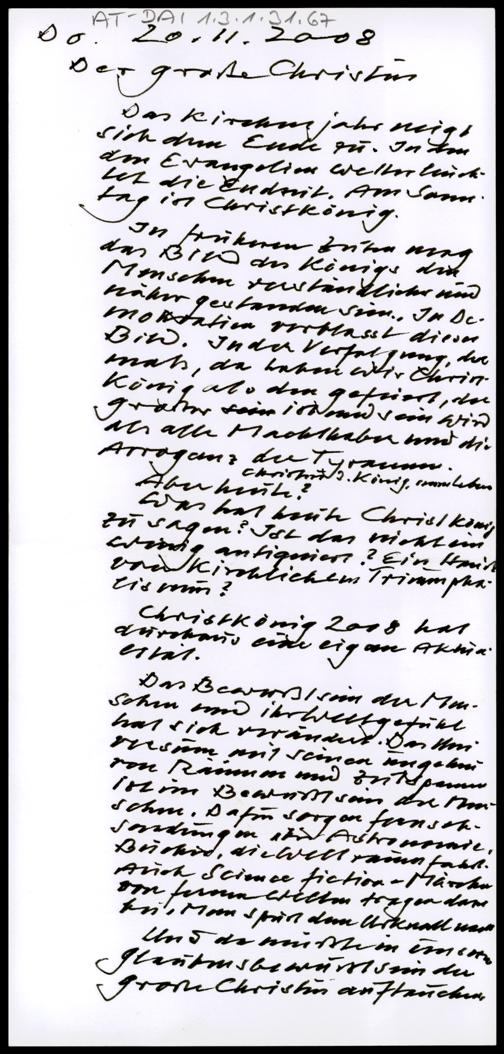 AT-DAI 1.3.1.31.67
Do. 20.11.2008
Der große Christus
Das Kirchenjahr neigt
sich dem Ende zu. In den
den Evangelien wetterleuch-
tet die Endzeit. Am Sonn-
tag ist Christkönig.
In früheren Zeiten mag
das Bild des Königs den
Menschen verständlicher und
näher gestanden sein. In De-
mokratien verblasst dieses
Bild. In der Verfolgung, da-
mals, da haben wir Christ-
könig als den gefeiert, der
größer sein ist und sein wird
als alle Machthaber und die
Arroganz der Tyrannen.
Christus, d. König,
Aber heute?
Was hat heute Christkönig
zu sagen? Ist das nicht ein
wenig antiquiert? Ein Hauch
von kirchlichem Triumpha-
lismus?
Christkönig 2008 hat
durchaus eine eigene Aktua-
lität.
Das Bewußtsein der Men-
schen und ihr Weltgefühl
hat sich verändert. Das Uni-
versum mit seinen ungeheu
von Räumen und Zeitspannen
ist im Bewußtsein der Men-
schen. Dafür sorgen Fernseh-
sendungen über Astronomie,
Bücher, die Weltraumfahrt.
Auch Science fiction-Märchen
von fernen Welten tragen dazu
bei. Man spürt den Urknall
Und da müßte in unserem
Glaubensbewußtsein der
große Christus auftauchen